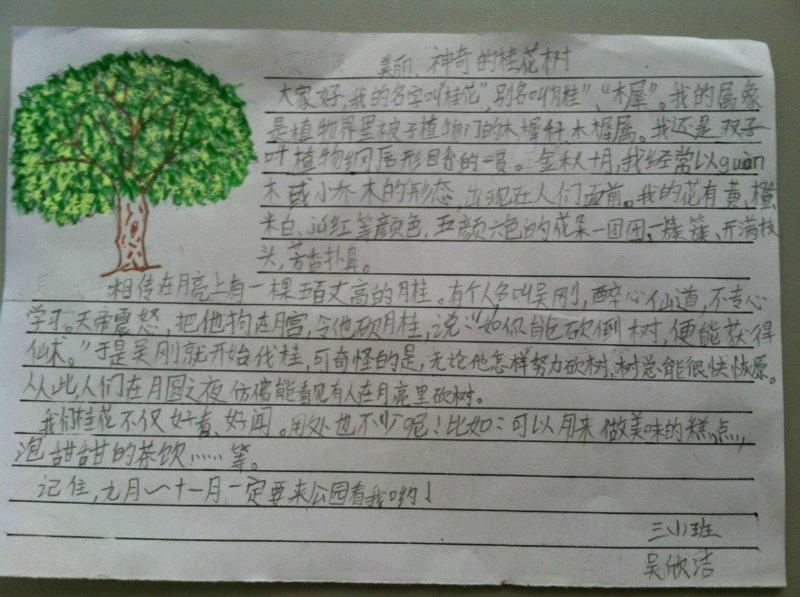 美丽、神奇的桂花树
大家好,我的名字叫“桂花”,别名叫“月桂”、“木犀”。我的属象
是植物界里被子植物门的木樨科、木樨属。我还是双子
叶植物纲唇形目的一员。金秋十月,我经常以guàn
木或小乔木的形态,出现在人们面前。我的花有黄、橙、
米白、汕红等颜色,五颜六色的花朵一团团、一簇簇、开满枝
头,芳香扑鼻。
相传在月亮上有一棵五百丈高的月桂。有个人名叫吴刚,醉心仙道,不专心
学习。天帝震怒,把他拘在月宫,令他砍月桂,说:“如你能砍倒树,便能获得
仙术。”于是吴刚就开始伐桂,可奇怪的是,无论他怎样努力砍树,树总能很快恢原。
从此,人们在月圆之夜仿佛能看见有人在月亮里砍树。
我们桂花不仅好看、好闻。用处也不少呢!比如:可以用来做美味的糕点,
泡甜甜的茶饮……等。
记住,九月~十一月一定要来公园看我哟!
三(1)班
吴欣洁